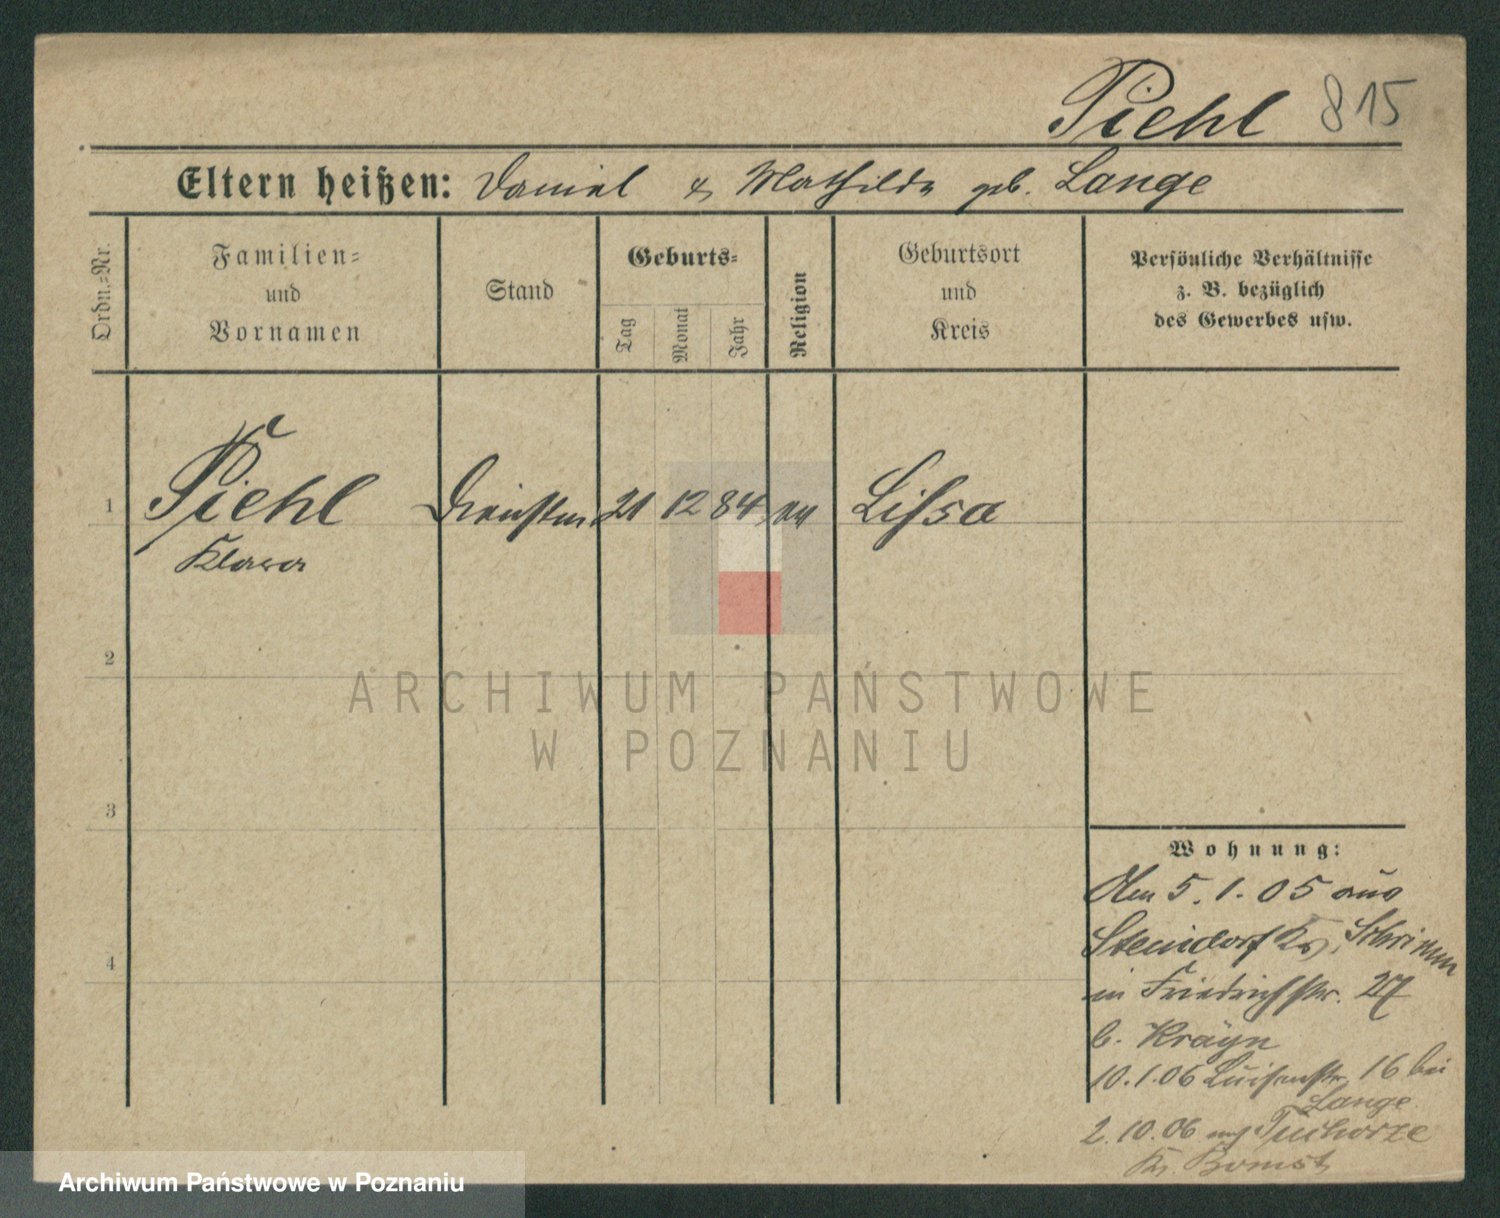 Piehl 815
Eltern heißen: Daniel & Mathilde geb. Lange
Ordn.-Nr.
Familien-
und
Vornamen
Stand
Geburts-
Tag
Monat
Jahr
Religion
Geburtsort
und
Kreis
Persönliche Verhältnisse
z. B. bezüglich
des Gewerbes usw.
1 Piehl 21 12 84 ev Lissa
Klara
2
3
4
ARCHIWUM PAŃSTWOWE
W POZNANIU
Wohnung:
Am 5.1.05 aus
Steindorf Krs. Schrimm
in Friedrichstr. 27
b. Kräyn
10.1.06 Luisenstr. 16 bei
Lange
2.10.06 nach Tuchorze
Kr. Bomst
Archiwum Państwowe w Poznaniu